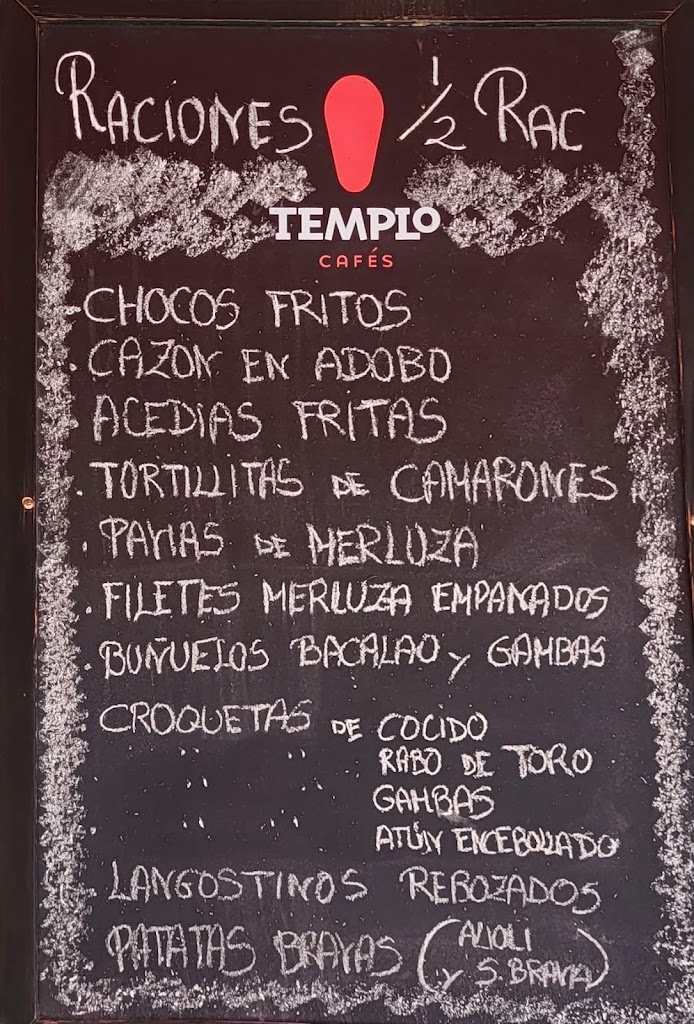 RACIONES 1/2 RAC
TEMPLO
CAFÉS
- CHOCOS FRITOS
. CAZON EN ADOBO
. ACEDIAS FRITAS
. TORTILLITAS DE CAMARONES
. PAVIAS DE MERLUZA
. FILETES MERLUZA EMPANADOS
. BUÑUELOS BACALAO Y GAMBAS
CROQUETAS DE COCIDO
" " " RABO DE TORO
GAMBAS
" " " ATÚN ENCEBOLLADO
- LANGOSTINOS REBOZADOS
. PATATAS BRAVAS (ALIOLI
Y S. BRAVA)